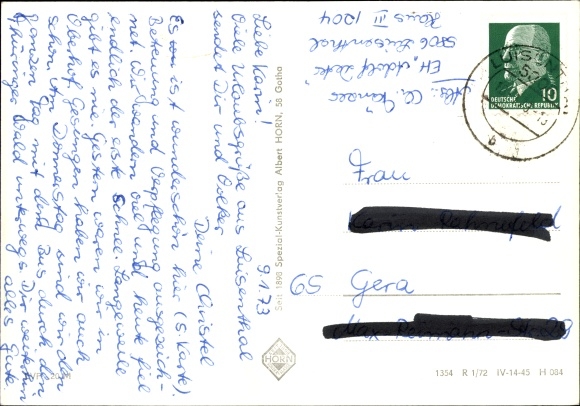 9.1.73
Liebe Karin!
Viele Urlaubsgrüße aus Luisenthal
sendet Dir und Volker
Deine Christel
Es ist wunderschön hier (5 Karte).
Betreuung und Verpflegung ausgezeich-
net. Wir wandern viel und heute fiel
endlich der erste Schnee. Langeweile
gibt es nie. Gestern waren wir in
Oberhof. Gesungen haben wir auch
schon. Am Donnerstag sind wir den
ganzen Tag mit dem Bus durch den
Thüringer Wald unterwegs. Dir weiterhin
alles Gute
Abs.: Ch.
EH „Adolf
5806 Luisenthal
Haus III 1204
10
DEUTSCHE
DEMOKRATISCHE REPUBLIK
Frau
65 Gera
Seit 1890 Spezial-Kunstverlag Albert HORN, 58 Gotha
HORN
1354 R 1/72 IV-14-45 H 084